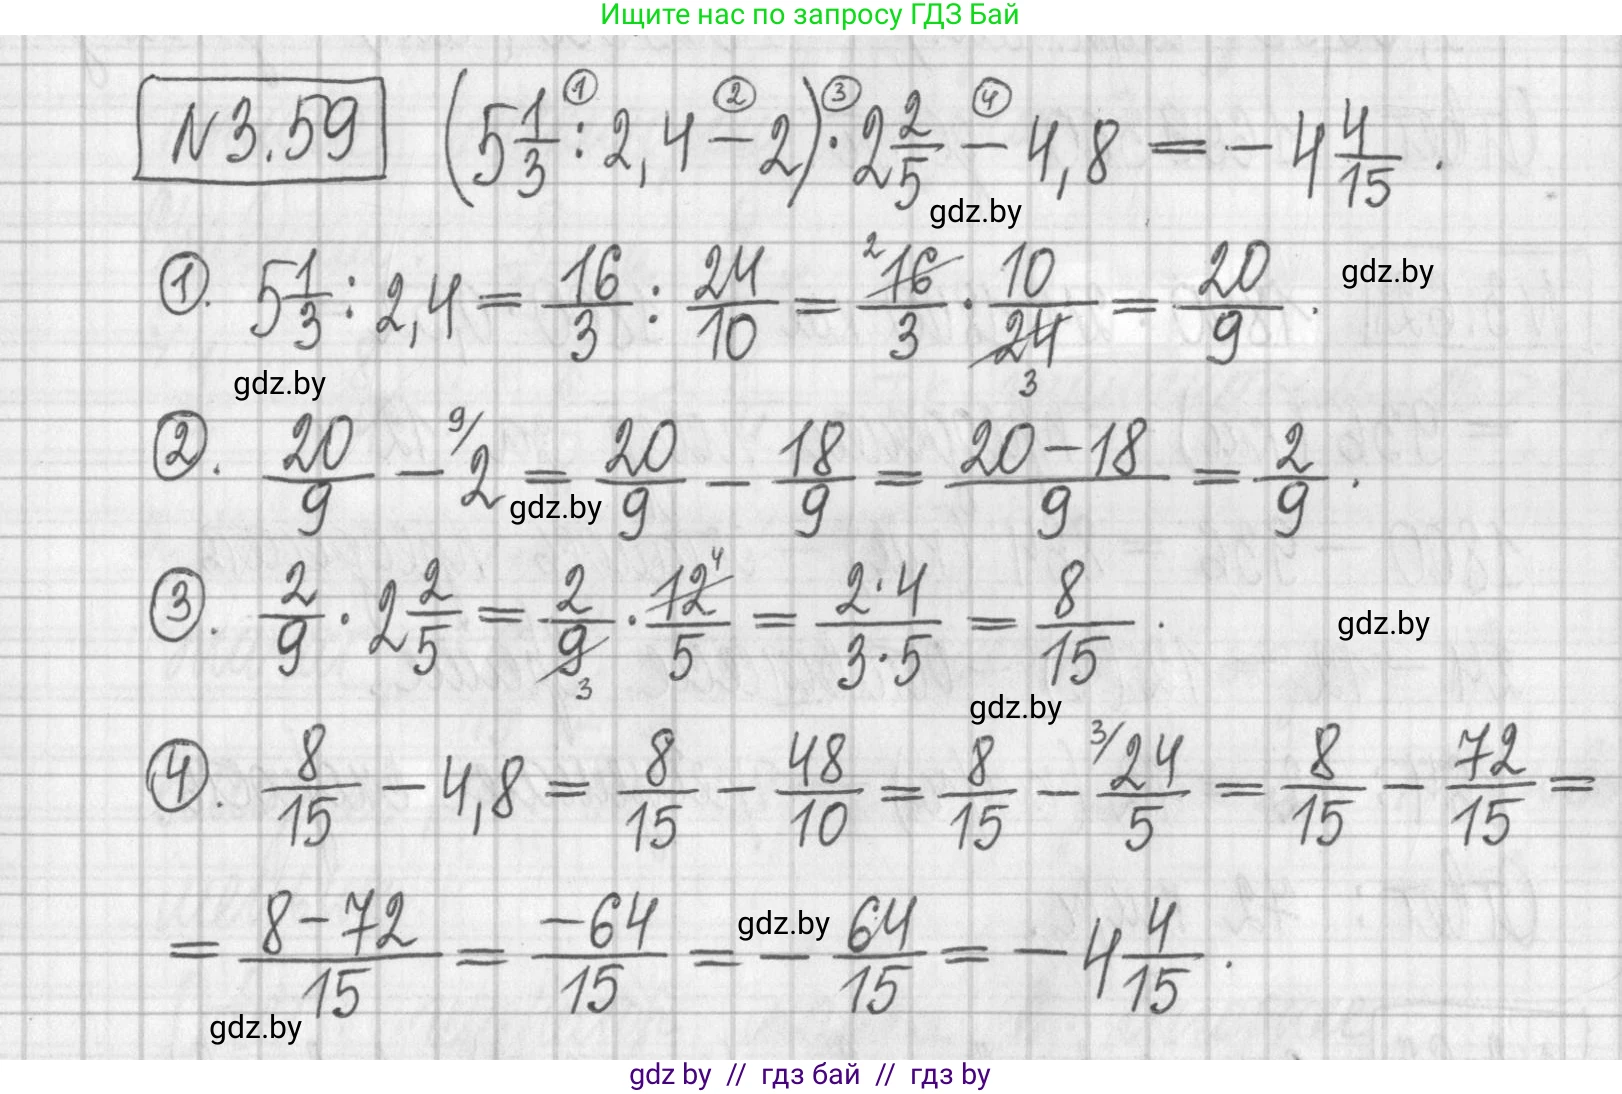 Ищите нас по запросу ГДЗ Бай
① ② ③ ④
N3.59 (5 1/3 : 2,4 − 2) · 2 2/5 − 4,8 = − 4 4/15 .
gdz.by
①. 5 1/3 : 2,4 = 16/3 : 24/10 = ² 16/3 · 10/24 ₃ = 20/9 .
gdz.by
gdz.by
②. 20/9 − ⁹⁄ 2 = 20/9 − 18/9 = 20−18/9 = 2/9 .
gdz.by
③. 2/9 · 2 2/5 = 2/9 ₃ · 12 ⁴/5 = 2·4/3·5 = 8/15 .
gdz.by
gdz.by
④. 8/15 − 4,8 = 8/15 − 48/10 = 8/15 − ³⁄ 24/5 = 8/15 − 72/15 =
= 8−72/15 = −64/15 = − 64/15 = − 4 4/15 .
gdz.by
gdz.by
gdz by // гдз бай // гдз by